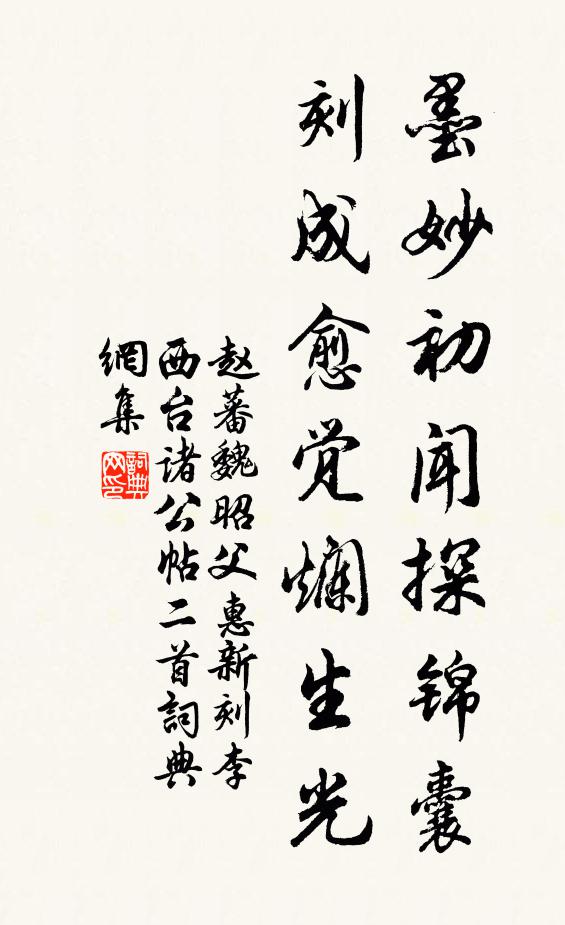 墨妙初闻探锦囊
刻成愈觉爛生光
赵蕃魏昭父惠新刻李
西台诸公帖二首詞典
網集
詞典
网印